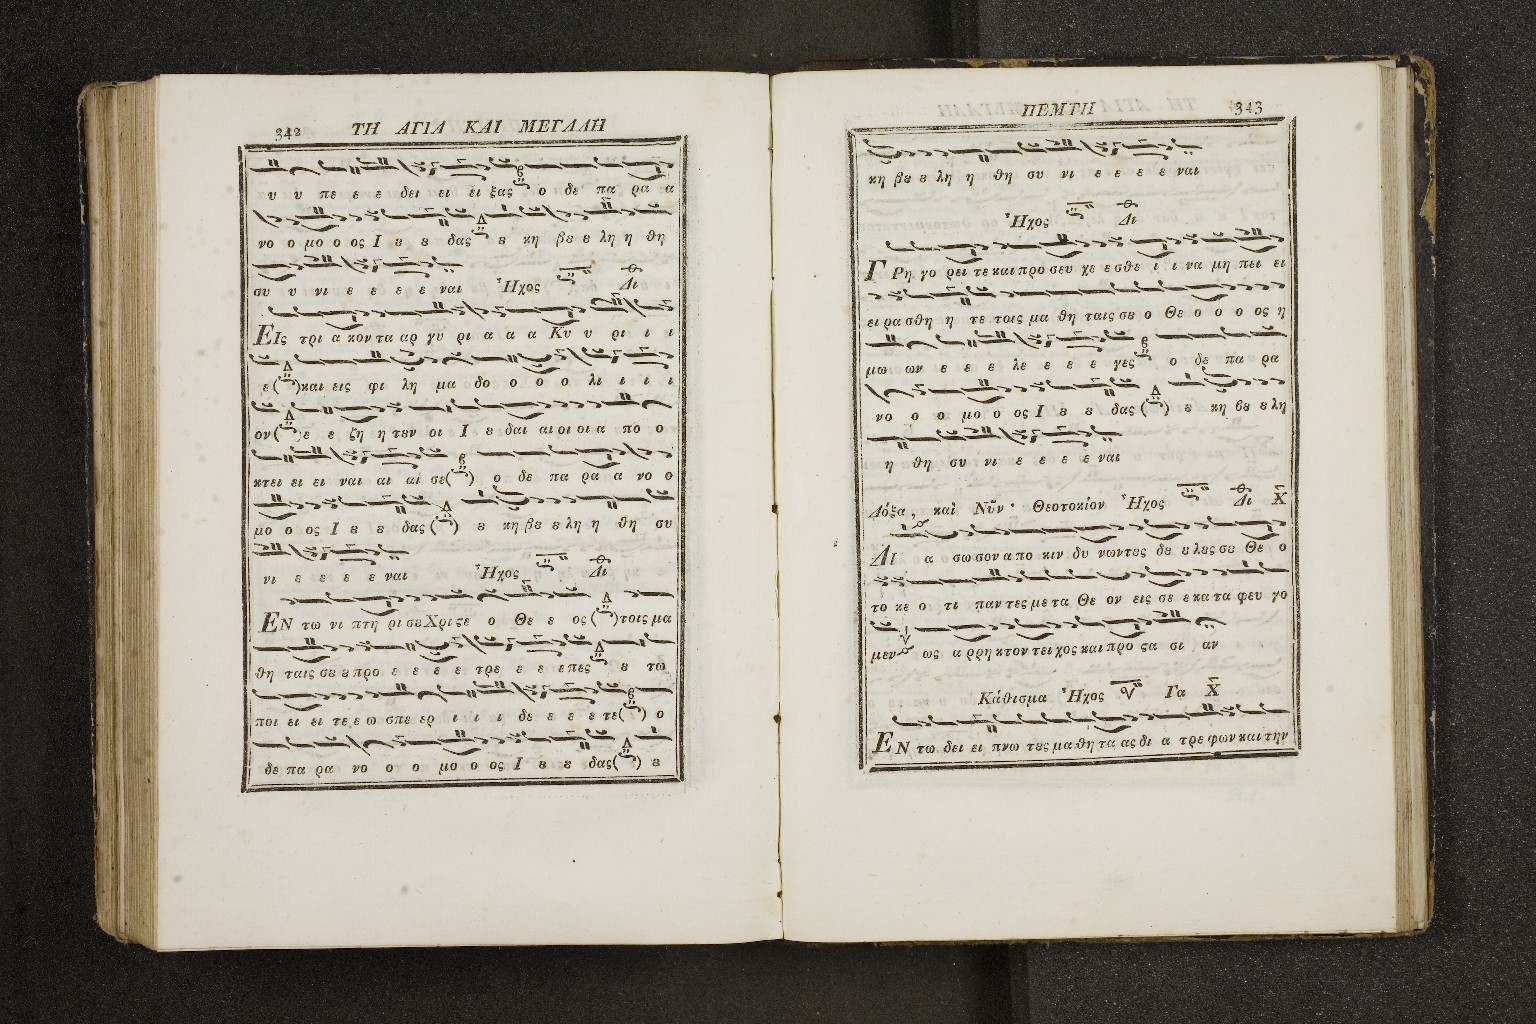 342 ΤΗ ΑΓΙΑ ΚΑΙ ΜΕΓΑΛΗ
υ υ πε ε ε δει ει ει ξας ο δε πα ρα α
νο ο μο ο ος Ι ȣ ȣ δας ȣ κη βȣ ȣ λη η θη
συ υ νι ε ε ε ε ναι Ἦχος Δι
ΕΙς τρι α κον τα αρ γυ ρι α α α Κυ υ ρι ι ι
ε ( ) και εις φι λη μα δο ο ο ο λι ι ι ι
ον ( ) ε ε ζη η τȣν οι Ι ȣ δαι αι οι οι α πο ο
κτει ει ει ναι αι αι σε ( ) ο δε πα ρα α νο ο
μο ο ος Ι ȣ ȣ δας ( ) ȣ κη βȣ ȣ λη η θη συ
νι ε ε ε ε ναι Ἦχος Δι
ΕΝ τω νι πτη ρι σȣ Χρι ϛε ο Θε ε ος ( ) τοις μα
θη ταις σȣ ȣ προ ε ε ε ε τρε ε ε ε πες ȣ τω
ποι ει ει τε ε ω σπε ερ ι ι ι δε ε ε ε τε ( ) ο
δε πα ρα νο ο ο μο ο ος Ι ȣ ȣ δας ( ) ȣ
ΠΕΜΤΗ 343
κη βȣ ȣ λη η θη συ νι ε ε ε ε ναι
Ἦχος Δι
ΓΡη γο ρει τε και προ σευ χε ε σθε ι ι να μη πει ει
ει ρα σθη η τε τοις μα θη ταις σȣ ο Θε ο ο ο ος η
μω ων ε ε ε λε ε ε ε γες ο δε πα ρα
νο ο ο μο ο ος Ι ȣ ȣ δας ( ) ȣ κη βȣ ȣ λη
η θη συ νι ε ε ε ε ναι
Δόξα, καὶ Νῦν· Θεοτοκίον Ἦχος Δι
ΔΙ α σω σον α πο κιν δυ νων τȣς δȣ ȣ λȣς σȣ Θε ο
το κε ο τι παν τες με τα Θε ον εις σε ε κα τα φευ γο
μεν ως α ρρη κτον τει χος και προ ϛα σι αν
Κάθισμα Ἦχος Γα
ΕΝ τω δει ει πνω τȣς μα θη τα ας δι α τρε φων και την